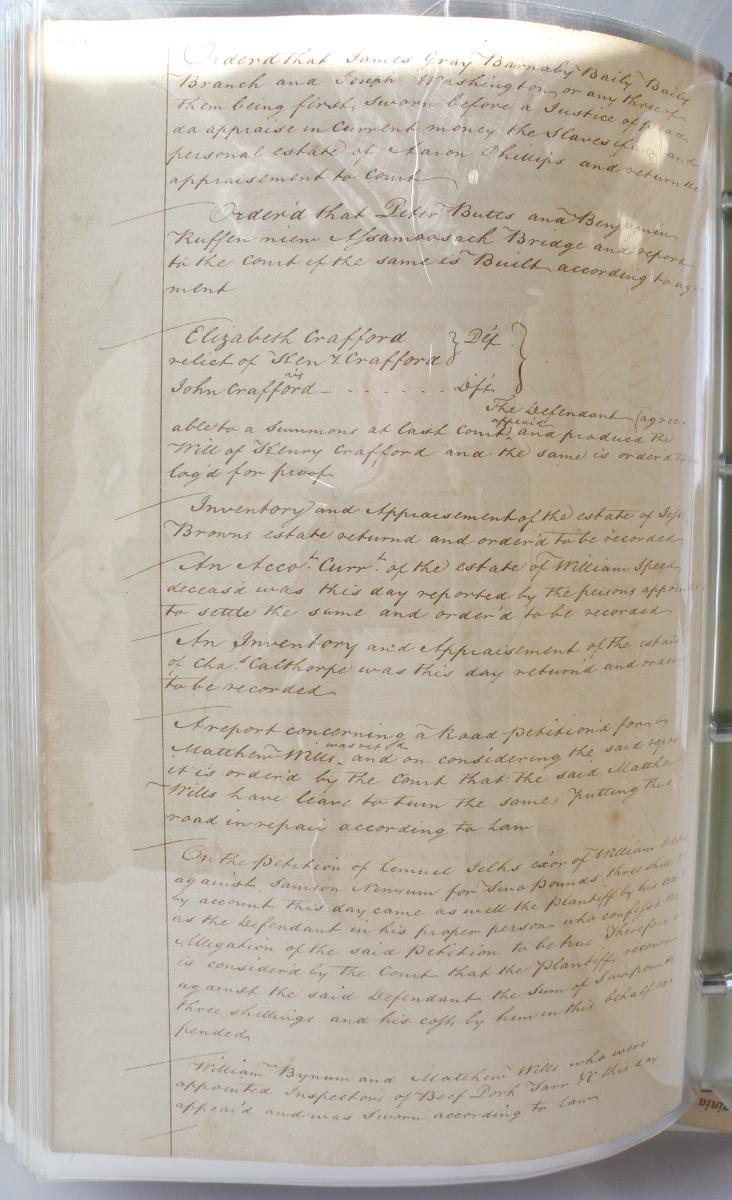 Orderd that James Gray Barnaby Baily Baily
Branch and Joseph Washington or any three of
them being first sworn before a Justice of peace
do appraise in Current money the Slaves if any and
personal estate of Aaron Phillips and return the
appraisement to Court
Order'd that Peter Butts and Benjamin
Ruffin view Assamoosack Bridge and report
to the Court if the same is Built according to agree
ment
Elizabeth Crafford
relict of Hen. Crafford
vs
John Crafford - - - - - - - Dft
The Defendant agree
able to a summons at last Court appeard and produced the
Will of Henry Crafford and the same is order'd to be
log'd for proof
Inventory and Appraisement of the estate of
Browns estate returnd and order'd to be recorded
An Accot. Currt. of the estate of William Speed
deceas'd was this day reported by the persons appoint
to settle the same and order'd to be recorded
An Inventory and Appraisement of the estate
of Chas. Calthorpe was this day return'd and order
to be recorded
A report concerning a Road petition'd for by
Matthew Wills was ret'd and on considering the said report
it is order'd by the Court that the said Matthew
Wills have leave to turn the same putting the
road in repair according to Law
On the Petition of Lemuel Jelks exor of William
against Samson Newsum for Two Pounds three shill
by account this day came as well the Plantiff by his
as the Defendant in his proper person who confess'd the
Allegation of the said Petition to be true Therefore
is consider'd by the Court that the Plantiff recover
against the said Defendant the Sum of Two pounds
three shillings and his costs by him in this behalf ex
pended
William Bynum and Matthew Wills who were
appointed Inspectors of Beef Pork Tarr &c this day
appeard and was Sworn according to Law